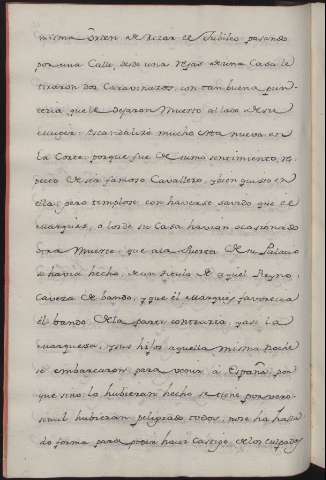 misma orden de rezar el Jubileo pasando
por una Calle, desde una rejas de una Casa le
tiraron dos Caravinazos, con tan buena pun-
teria que le dejaron Muerto al lado de su
muger. Escandalizó mucho esta nueva en
la Corte, porque fue de sumo sentimiento, res-
pecto de ser famoso Cavallero, y bien quisto en
ella, pero templose con haverse savido que el
Marques, o los de su Casa havian ocasionado
otra Muerte, que a la Puerta de su Palacio
se havia hecho, de un titulo de aquel Reyno,
Caveza de bando, y que el Marques favorecia
el bando de la parte contraria, y asi la
Marquesa, y sus hijos aquella misma noche
se embarcaron para venir á España, por
que si no lo hubieran hecho se tiene por vero-
simil hubieran peligrado todos, no se ha halla
do forma para poder hacer Castigo de los culpados